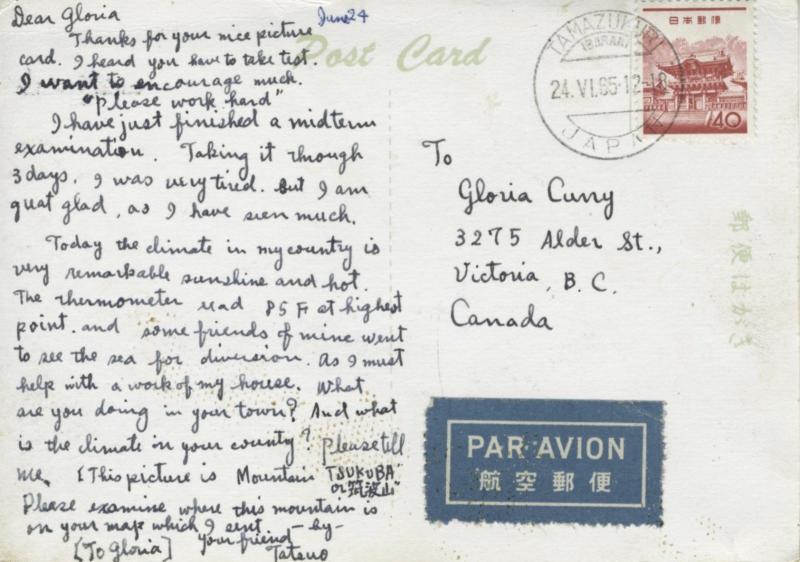 Dear Gloria
June 24
Thanks for your nice picture
card. I heard you have to take test.
I want to encourage much.
"Please work hard"
I have just finished a midterm
examination. Taking it through
3 days, I was very tired. But I am
gueat glad, as I have sien much.
Today the climate in my country is
very remarkable sunshine and hot.
The thermometer read 85 F at highest
point. and some friends of mine went
to see the sea for diversion. As I must
help with a work of my house. What
are you doing in your town? And what
is the climate in your country? Please tell
me. [This picture is Mountain TSUKUBA
or 筑波山"
Please examine where this mountain is
on your map which I sent. —by—
[To Gloria] Your friend Tatsuo
Post Card
TAMAZUKURI
IBARAKI
24.VI.65.12-18
JAPAN
日本郵便
40
To
Gloria Curry
3275 Alder St.,
Victoria, B.C.
Canada
郵便はがき
PAR AVION
航空郵便